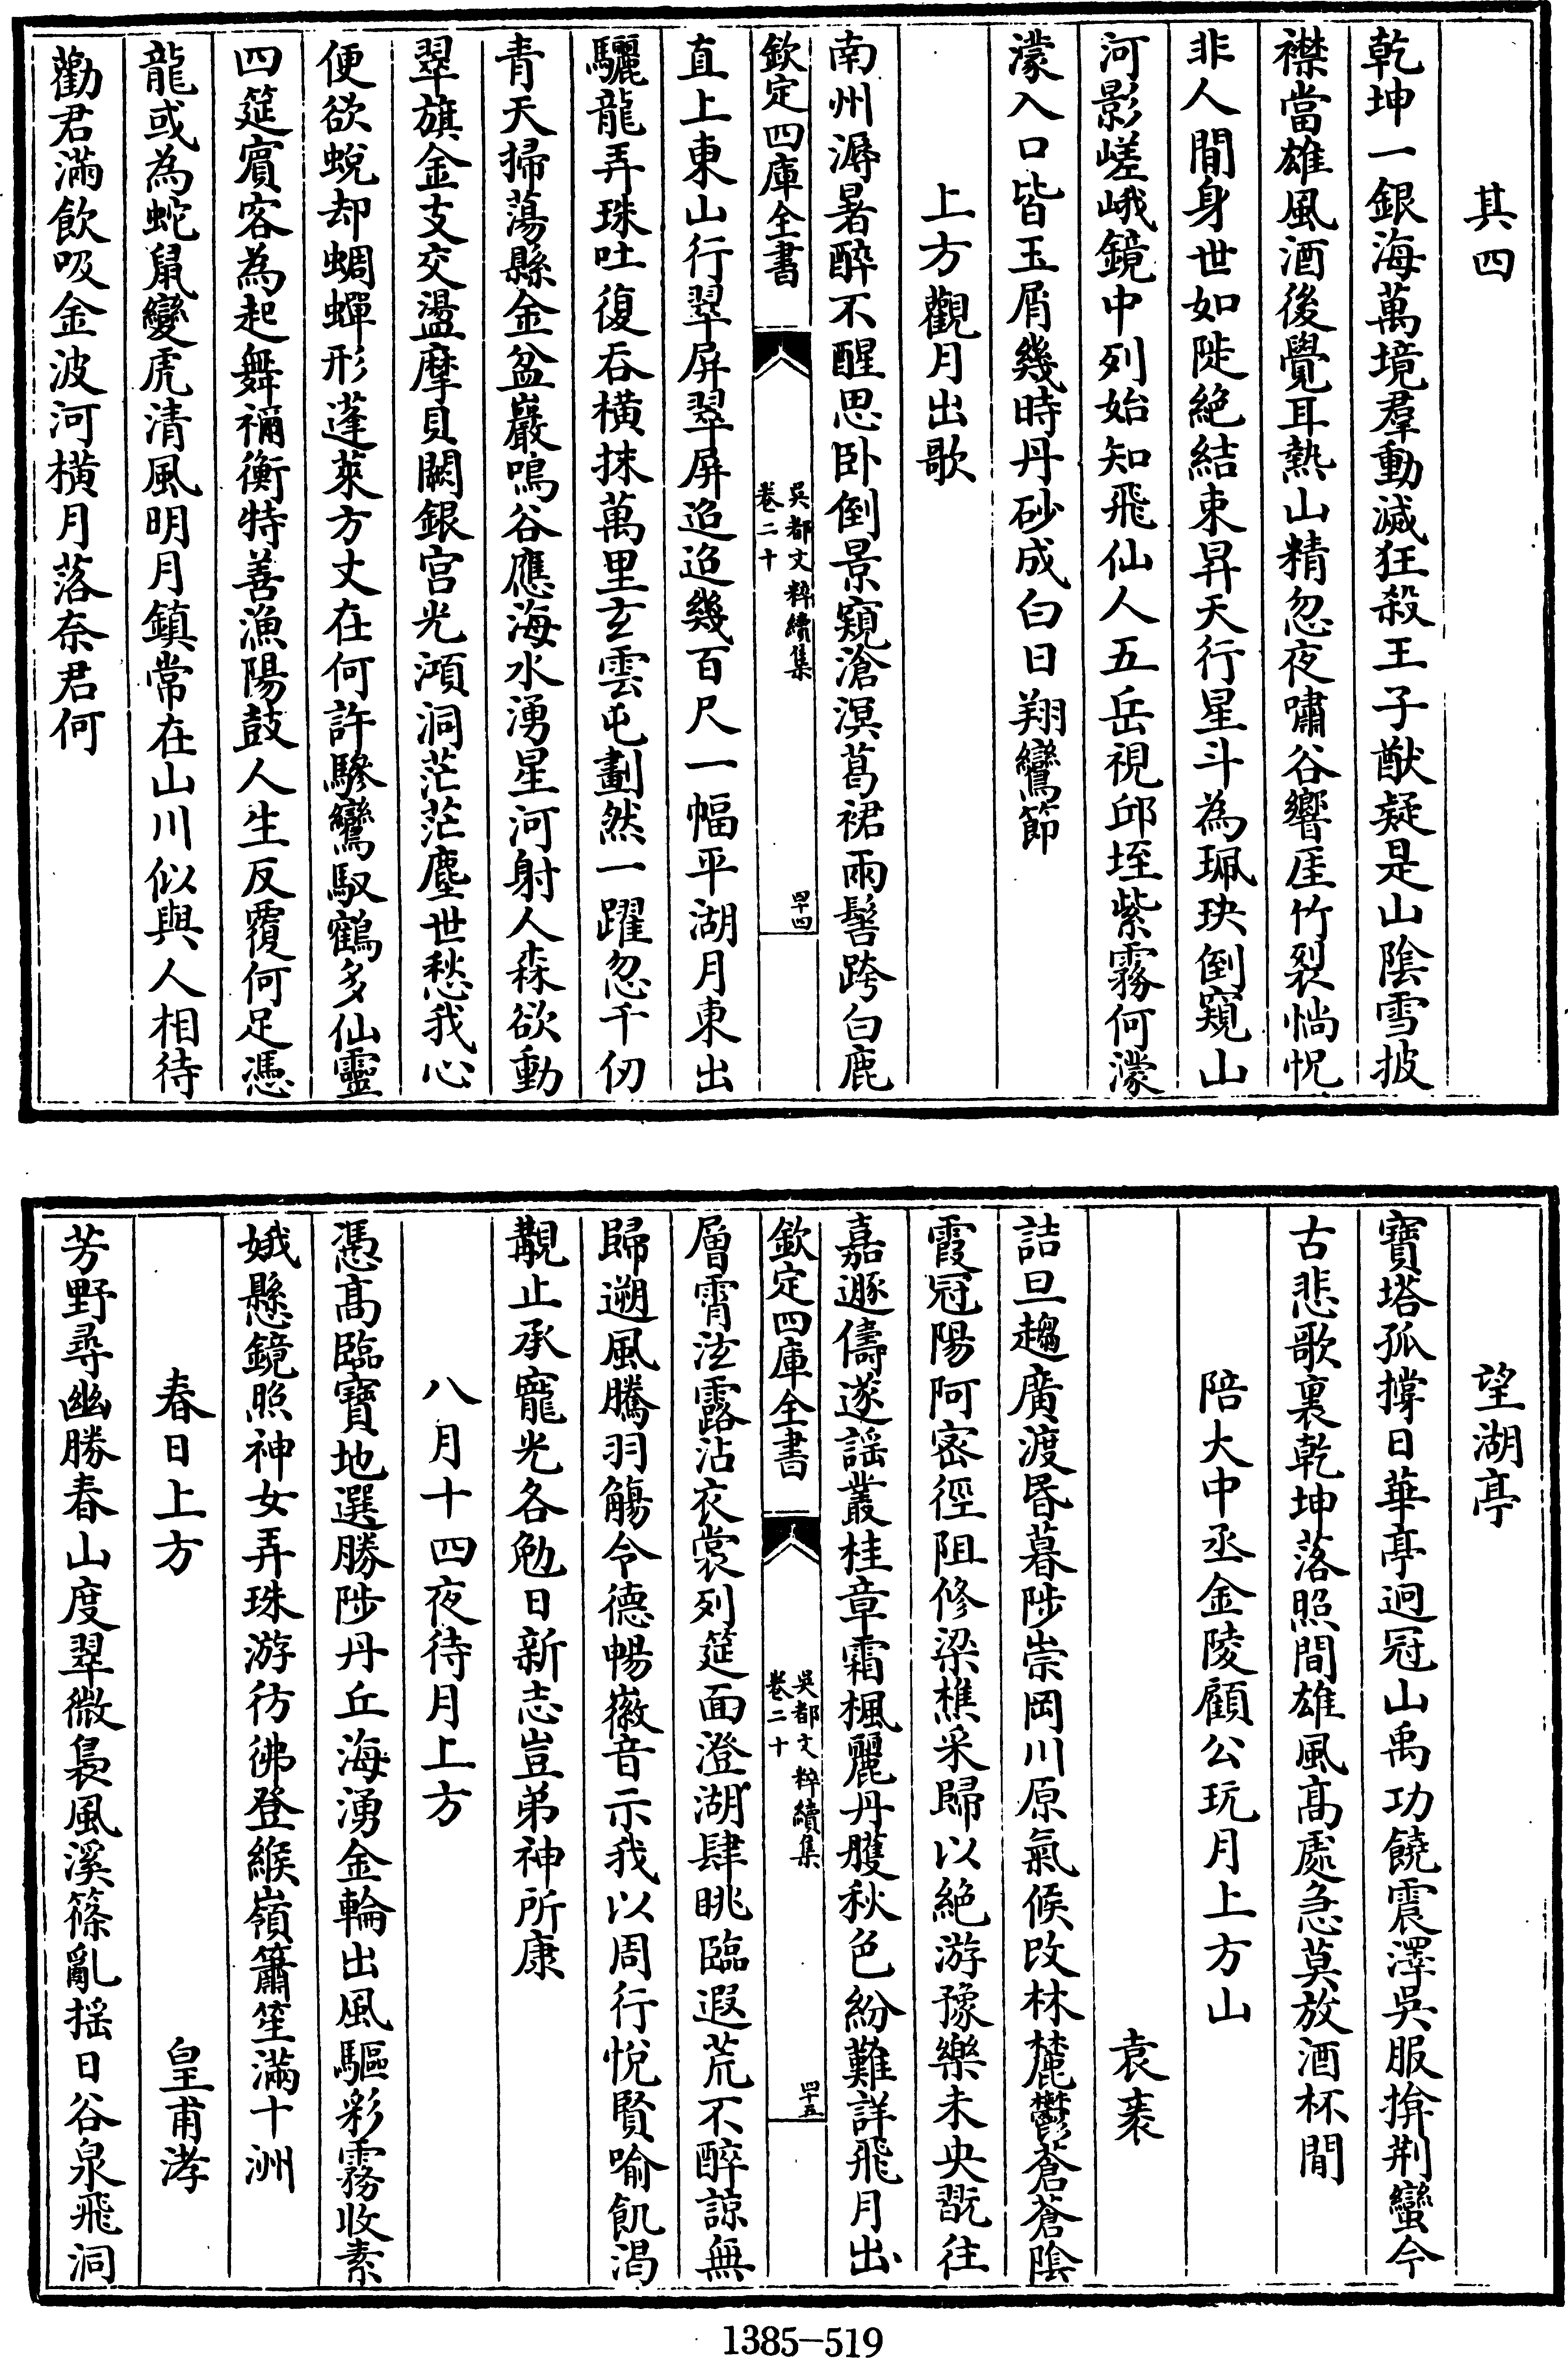 其四
乾坤一銀海萬境羣動滅狂殺王子猷疑是山陰雪披
襟當雄風酒後覺耳熱山精忽夜嘯谷響厓竹裂惝怳
非人間身世如陡絶結束昇天行星斗為珮玦倒窺山
河影嵯峨鏡中列始知飛仙人五岳視邱垤紫霧何濛
濛入口皆玉屑幾時丹砂成白日翔鸞節
上方觀月出歌
南州溽暑醉不醒思卧倒景窺滄溟葛裙兩髻跨白鹿
欽定四庫全書
吳都文粹續集
卷二十
四十四
直上東山行翠屏翠屏迢迢幾百尺一幅平湖月東出
驪龍弄珠吐復吞橫抹萬里玄雲屯劃然一躍忽千仞
青天掃蕩縣金盆巖鳴谷應海水湧星河射人森欲動
翠旗金支交盪摩貝闕銀宮光澒洞茫茫塵世愁我心
便欲蛻却蜩蟬形蓬萊方丈在何許驂鸞馭鶴多仙靈
四筵賓客為起舞禰衡特善漁陽鼓人生反覆何足憑
龍或為蛇䑕變虎清風明月鎮常在山川似與人相待
勸君滿飲吸金波河橫月落奈君何
望湖亭
寶塔孤撐日華亭迥冠山禹功饒震澤吳服揜荆蠻今
古悲歌裏乾坤落照間雄風髙處急莫放酒杯閒
陪大中丞金陵顧公玩月上方山
袁袠
詰旦趨廣渡昬暮陟崇岡川原氣候改林麓鬱蒼蒼陰
霞冠陽阿宻徑阻修梁樵采歸以絶游豫樂未央翫往
嘉遯儔遂謡叢桂章霜楓麗丹雘秋色紛難詳飛月出
欽定四庫全書
吳都文粹續集
卷二十
四十五
層霄泫露沾衣裳列筵面澄湖肆眺臨遐荒不醉諒無
歸遡風騰羽觴令德暢徽音示我以周行悦賢喻飢渴
覯止承寵光各勉日新志豈弟神所康
八月十四夜待月上方
憑髙臨寶地選勝陟丹丘海湧金輪出風驅彩霧收素
娥懸鏡照神女弄珠游彷彿登緱嶺簫笙滿十洲
春日上方
皇甫涍
芳野尋幽勝春山度翠微裊風溪篠亂揺日谷泉飛洞
1385—519